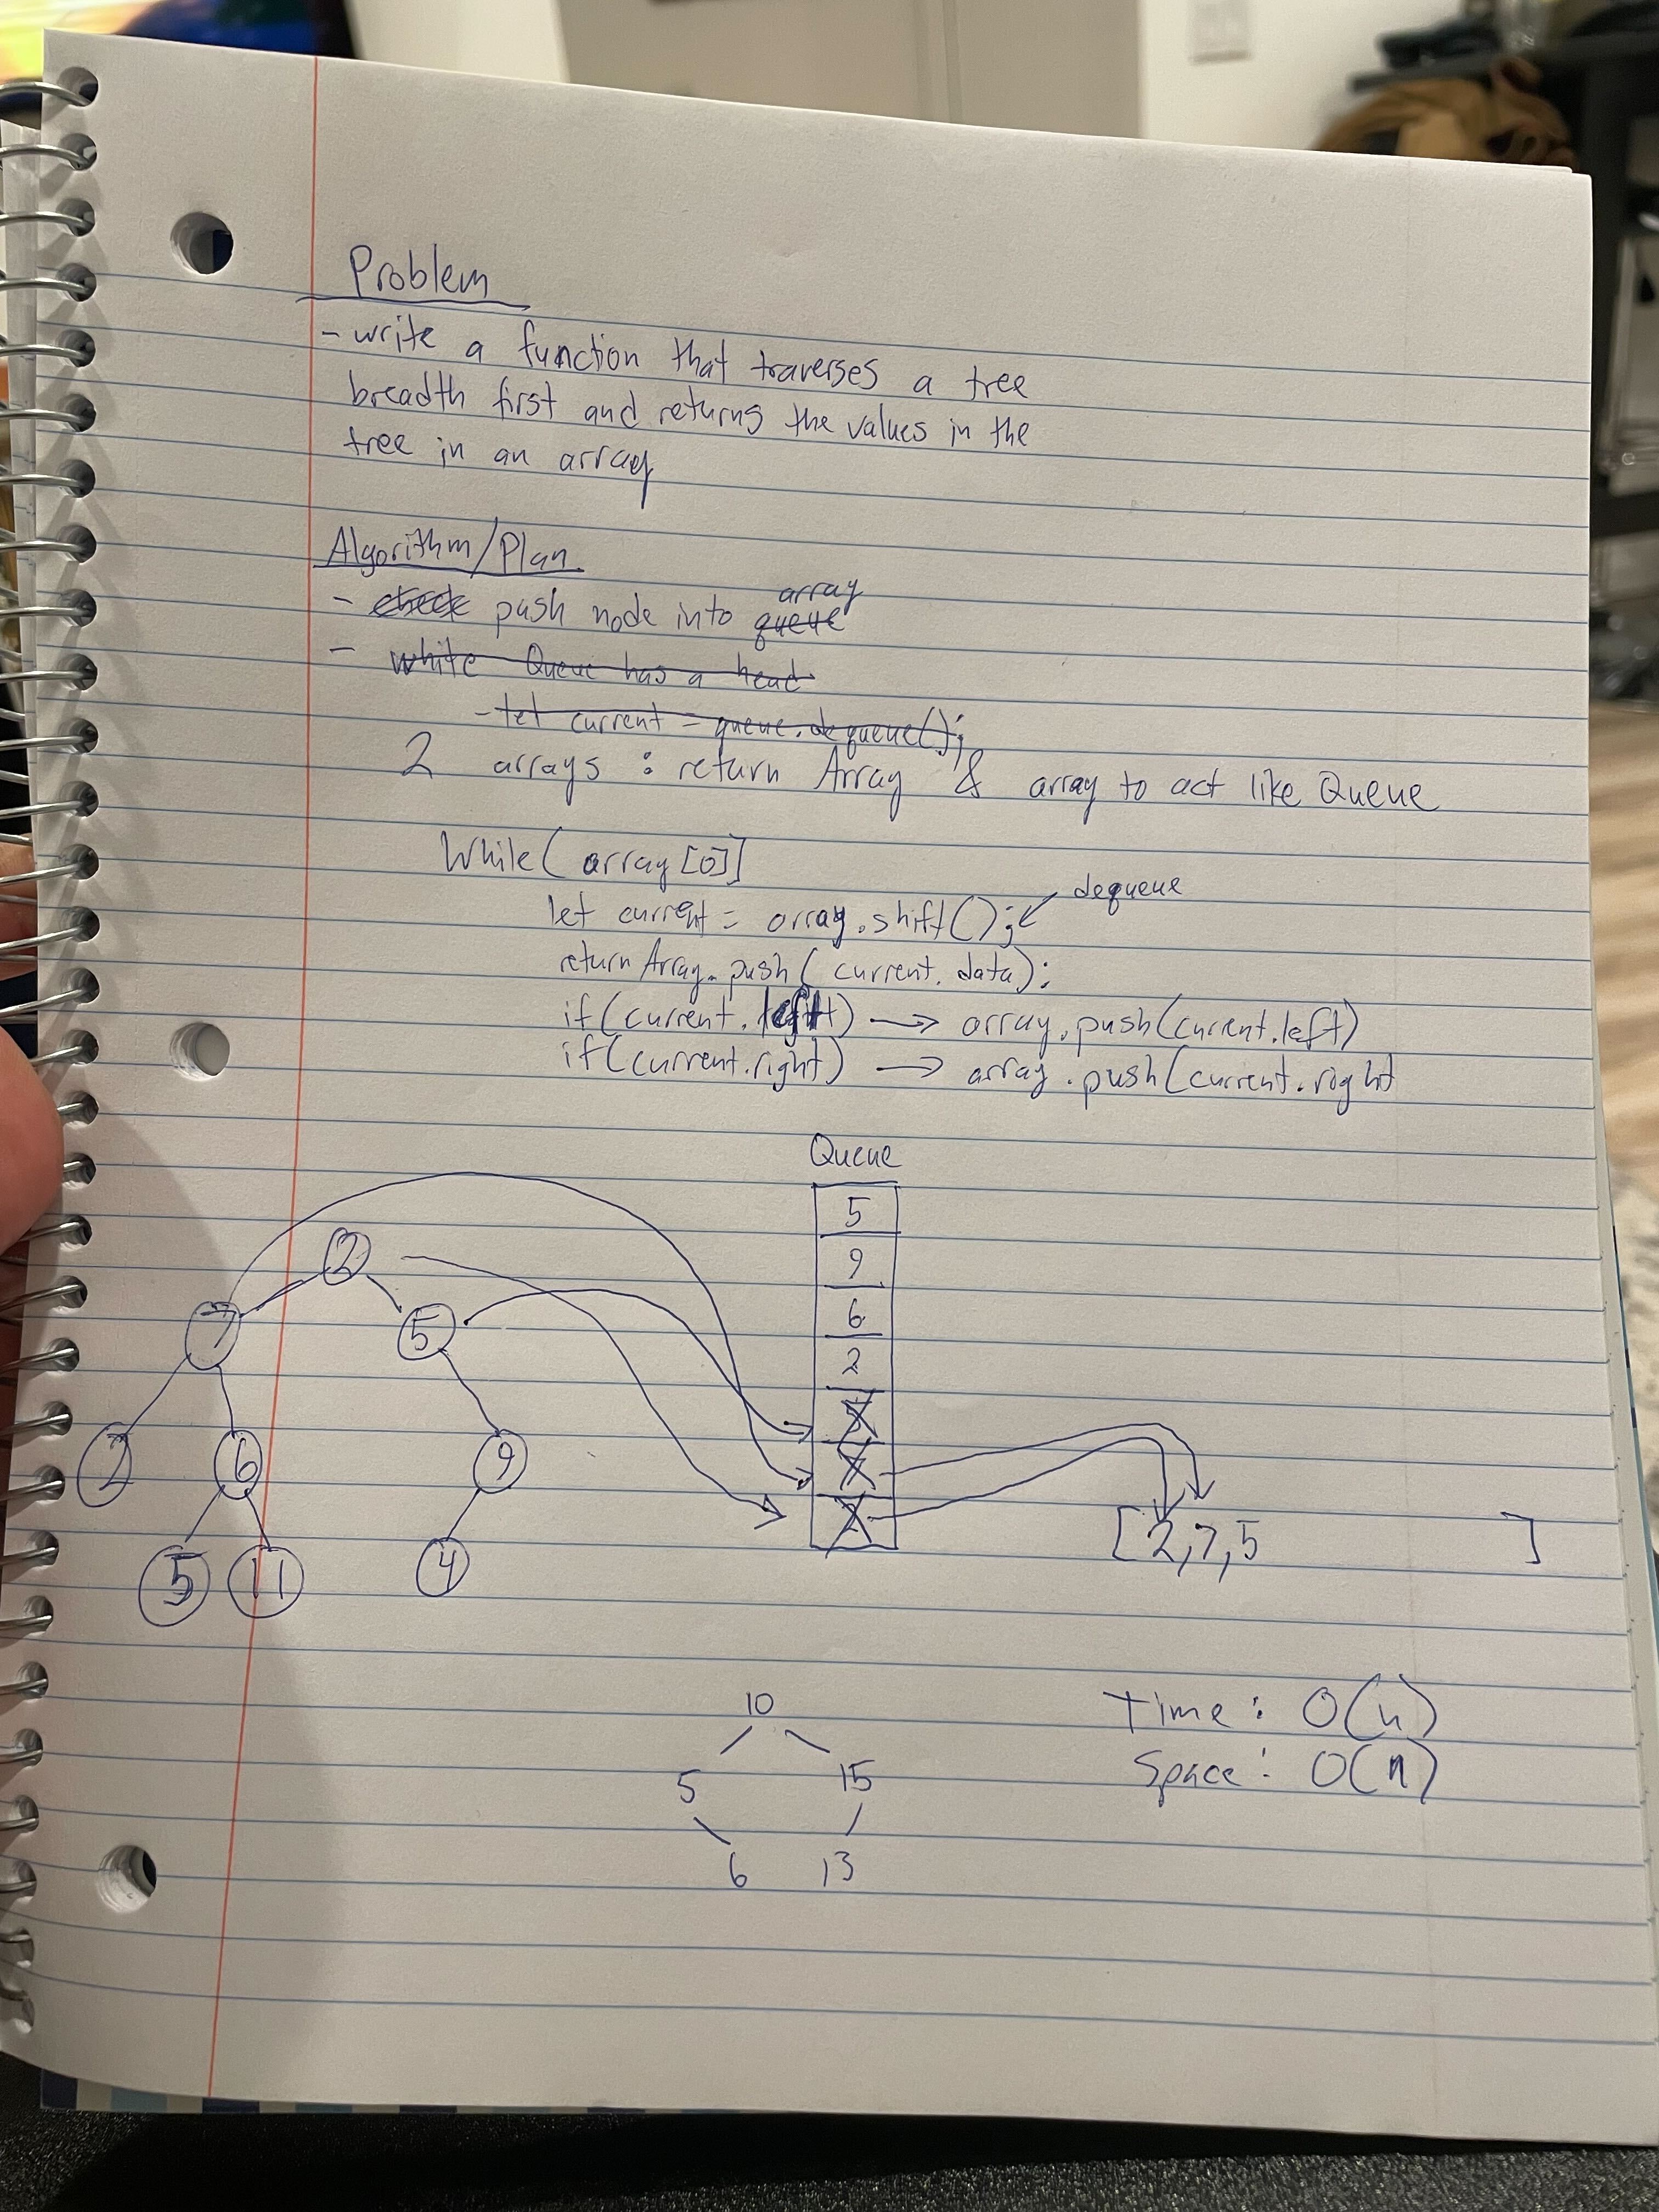 Problem
- write a function that traverses a tree
breadth first and returns the values in the
tree in an array
Algorithm/Plan
array
- check push node into queue
- while Queue has a head
- let current = queue.dequeue();
2 arrays : return Array & array to act like Queue
While( array [0]]
dequeue
let current = array.shift();
return Array.push( current.data);
if(current.left) → array.push(current.left)
if(current.right) → array.push(current.right
Queue
5
9
6
2
5
7
2
2
7 5
2 6 9
5 11 4
[2,7,5 ]
10
5 15
6 13
Time: O(n)
Space: O(n)